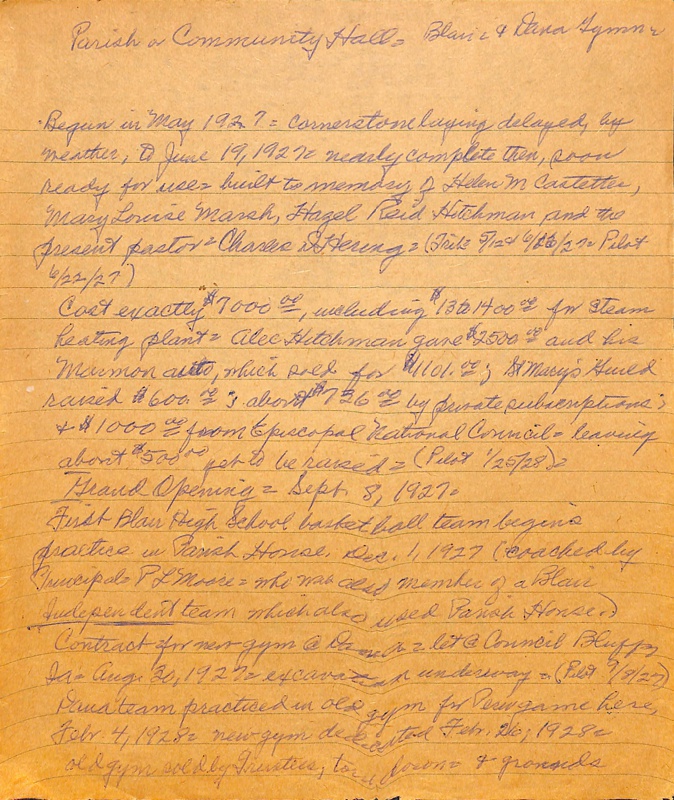 Parish or Community Hall = Blair = & Dana Gymn =
Begun in May 1927 = cornerstone laying delayed, by
weather, to June 19, 1927 = nearly complete then, soon
ready for use = built to memory of Helen M Castetter,
Mary Louise Marsh, Hazel Reid Hitchman and the
present pastor = Charles D Hering = (Trib = 5/12 & 6/16/27 = Pilot
6/22/27)
Cost exactly $7000 00, including $13 to 1400 00 for steam
heating plant = Alec Hitchman gave $2500 00 and his
Marmon auto, which sold for $1101.00; St Mary's Guild
raised $600.00; about $726 00 by private subscriptions;
& $1000 00 from Episcopal National Council = leaving
about $500 00 yet to be raised = (Pilot 1/25/28) =
Grand Opening = Sept. 8, 1927 =
First Blair High School basket ball team begins
practice in Parish House, Dec. 1, 1927 (coached by
Principal = P L Moore = who was also member of a Blair
Independent team which also used Parish House.)
Contract for new gym @ Dana = let @ Council Bluffs,
Ia = Aug. 30, 1927 = excavation underway = (Pilot 9/8/27)
Dana team practiced in old gym for Peru game here,
Feb. 4, 1928 = new gym dedicated Feb. 26, 1928 =
old gym sold by Trustees, torn down = & grounds